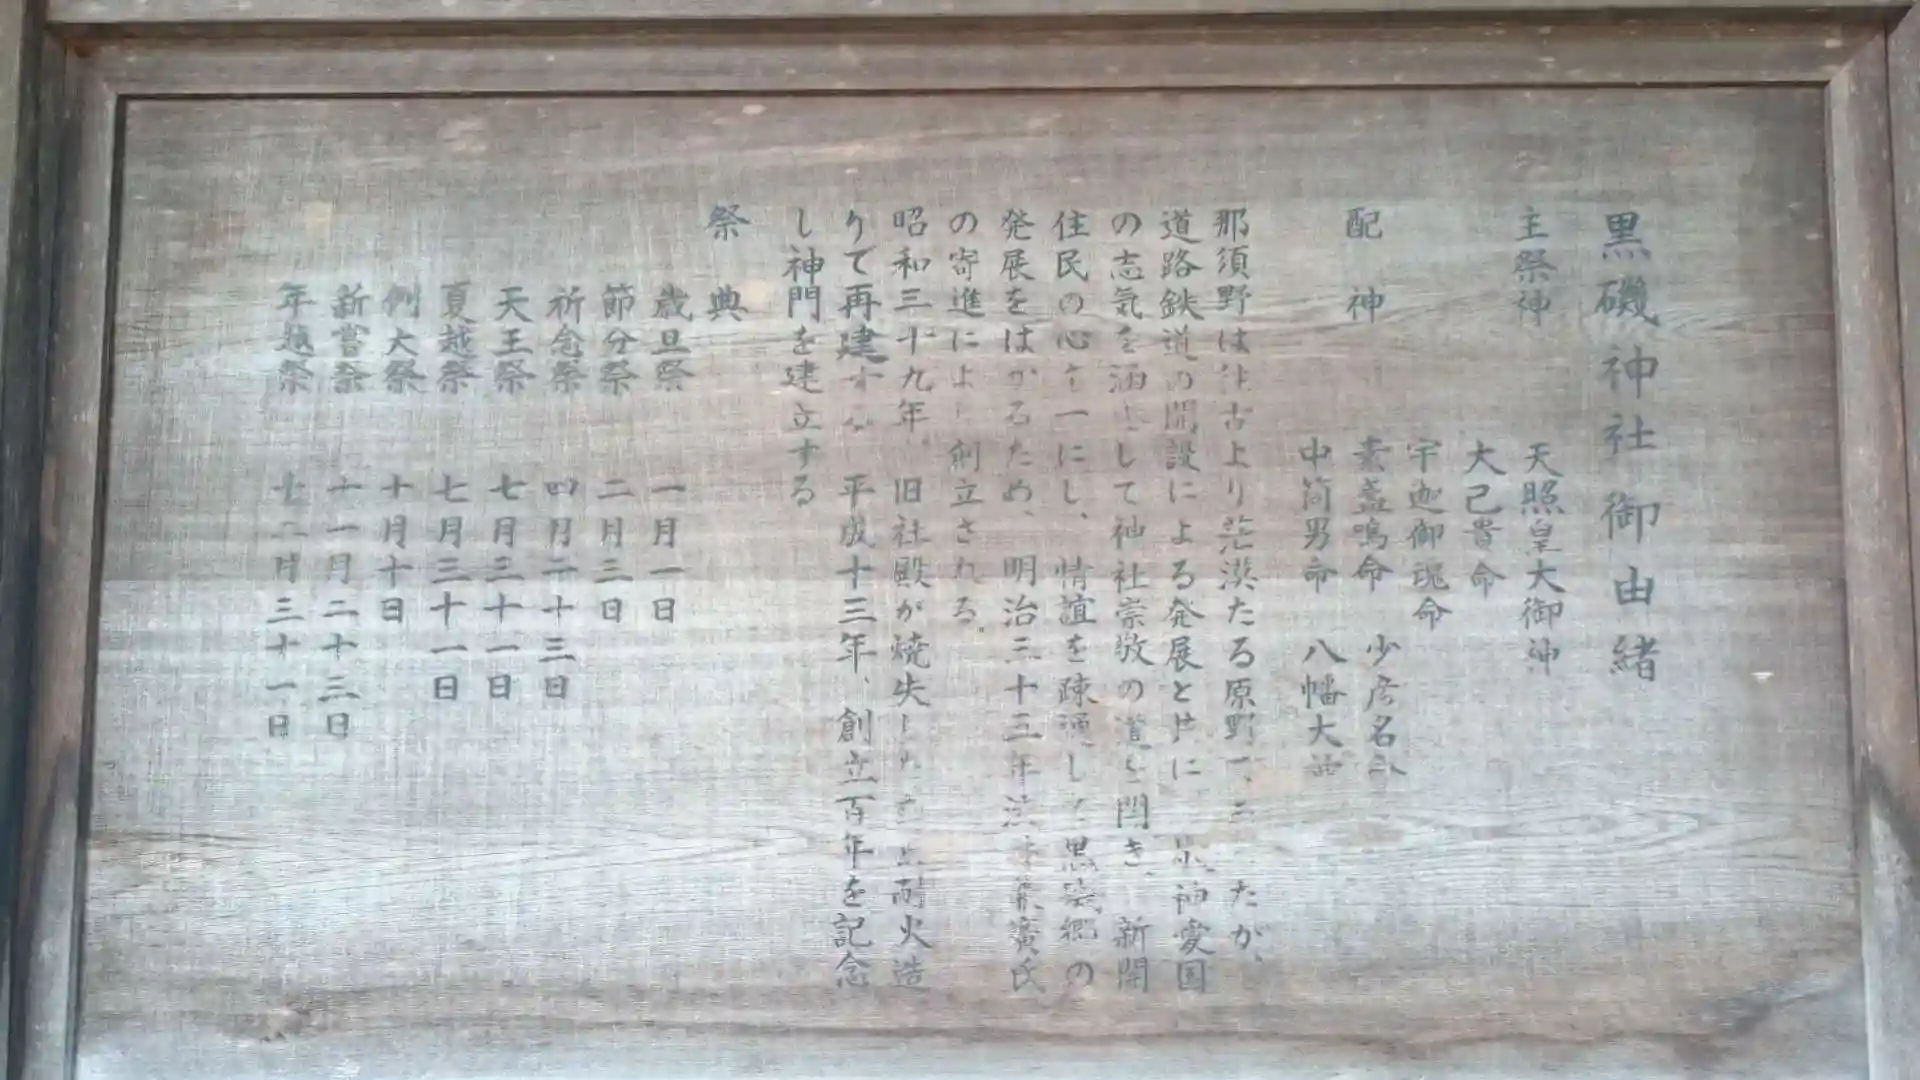 黒磯神社御由緒
主祭神 天照皇大御神
大己貴命
宇迦御魂命
配神 素盞嗚命 少彦名命
中筒男命 八幡大神
那須野は往古より茫漠たる原野であったが、
道路鉄道の開設による発展と共に 神愛国
の志気を涵 して神社崇敬の道を開き、新開
住民の心を一にし、情誼を疎通して黒磯郷の
発展をはかるため、明治三十三年 氏
の寄進により創立される。
昭和三十九年。旧社殿が焼失し 耐火造
りて再建する 平成十三年、創立百年を記念
し神門を建立する
祭典
歳旦祭 一月一日
節分祭 二月三日
祈念祭 四月二十三日
天王祭 七月三十一日
夏越祭 七月三十一日
例大祭 十月十日
新嘗祭 十一月二十三日
年越祭 十二月三十一日